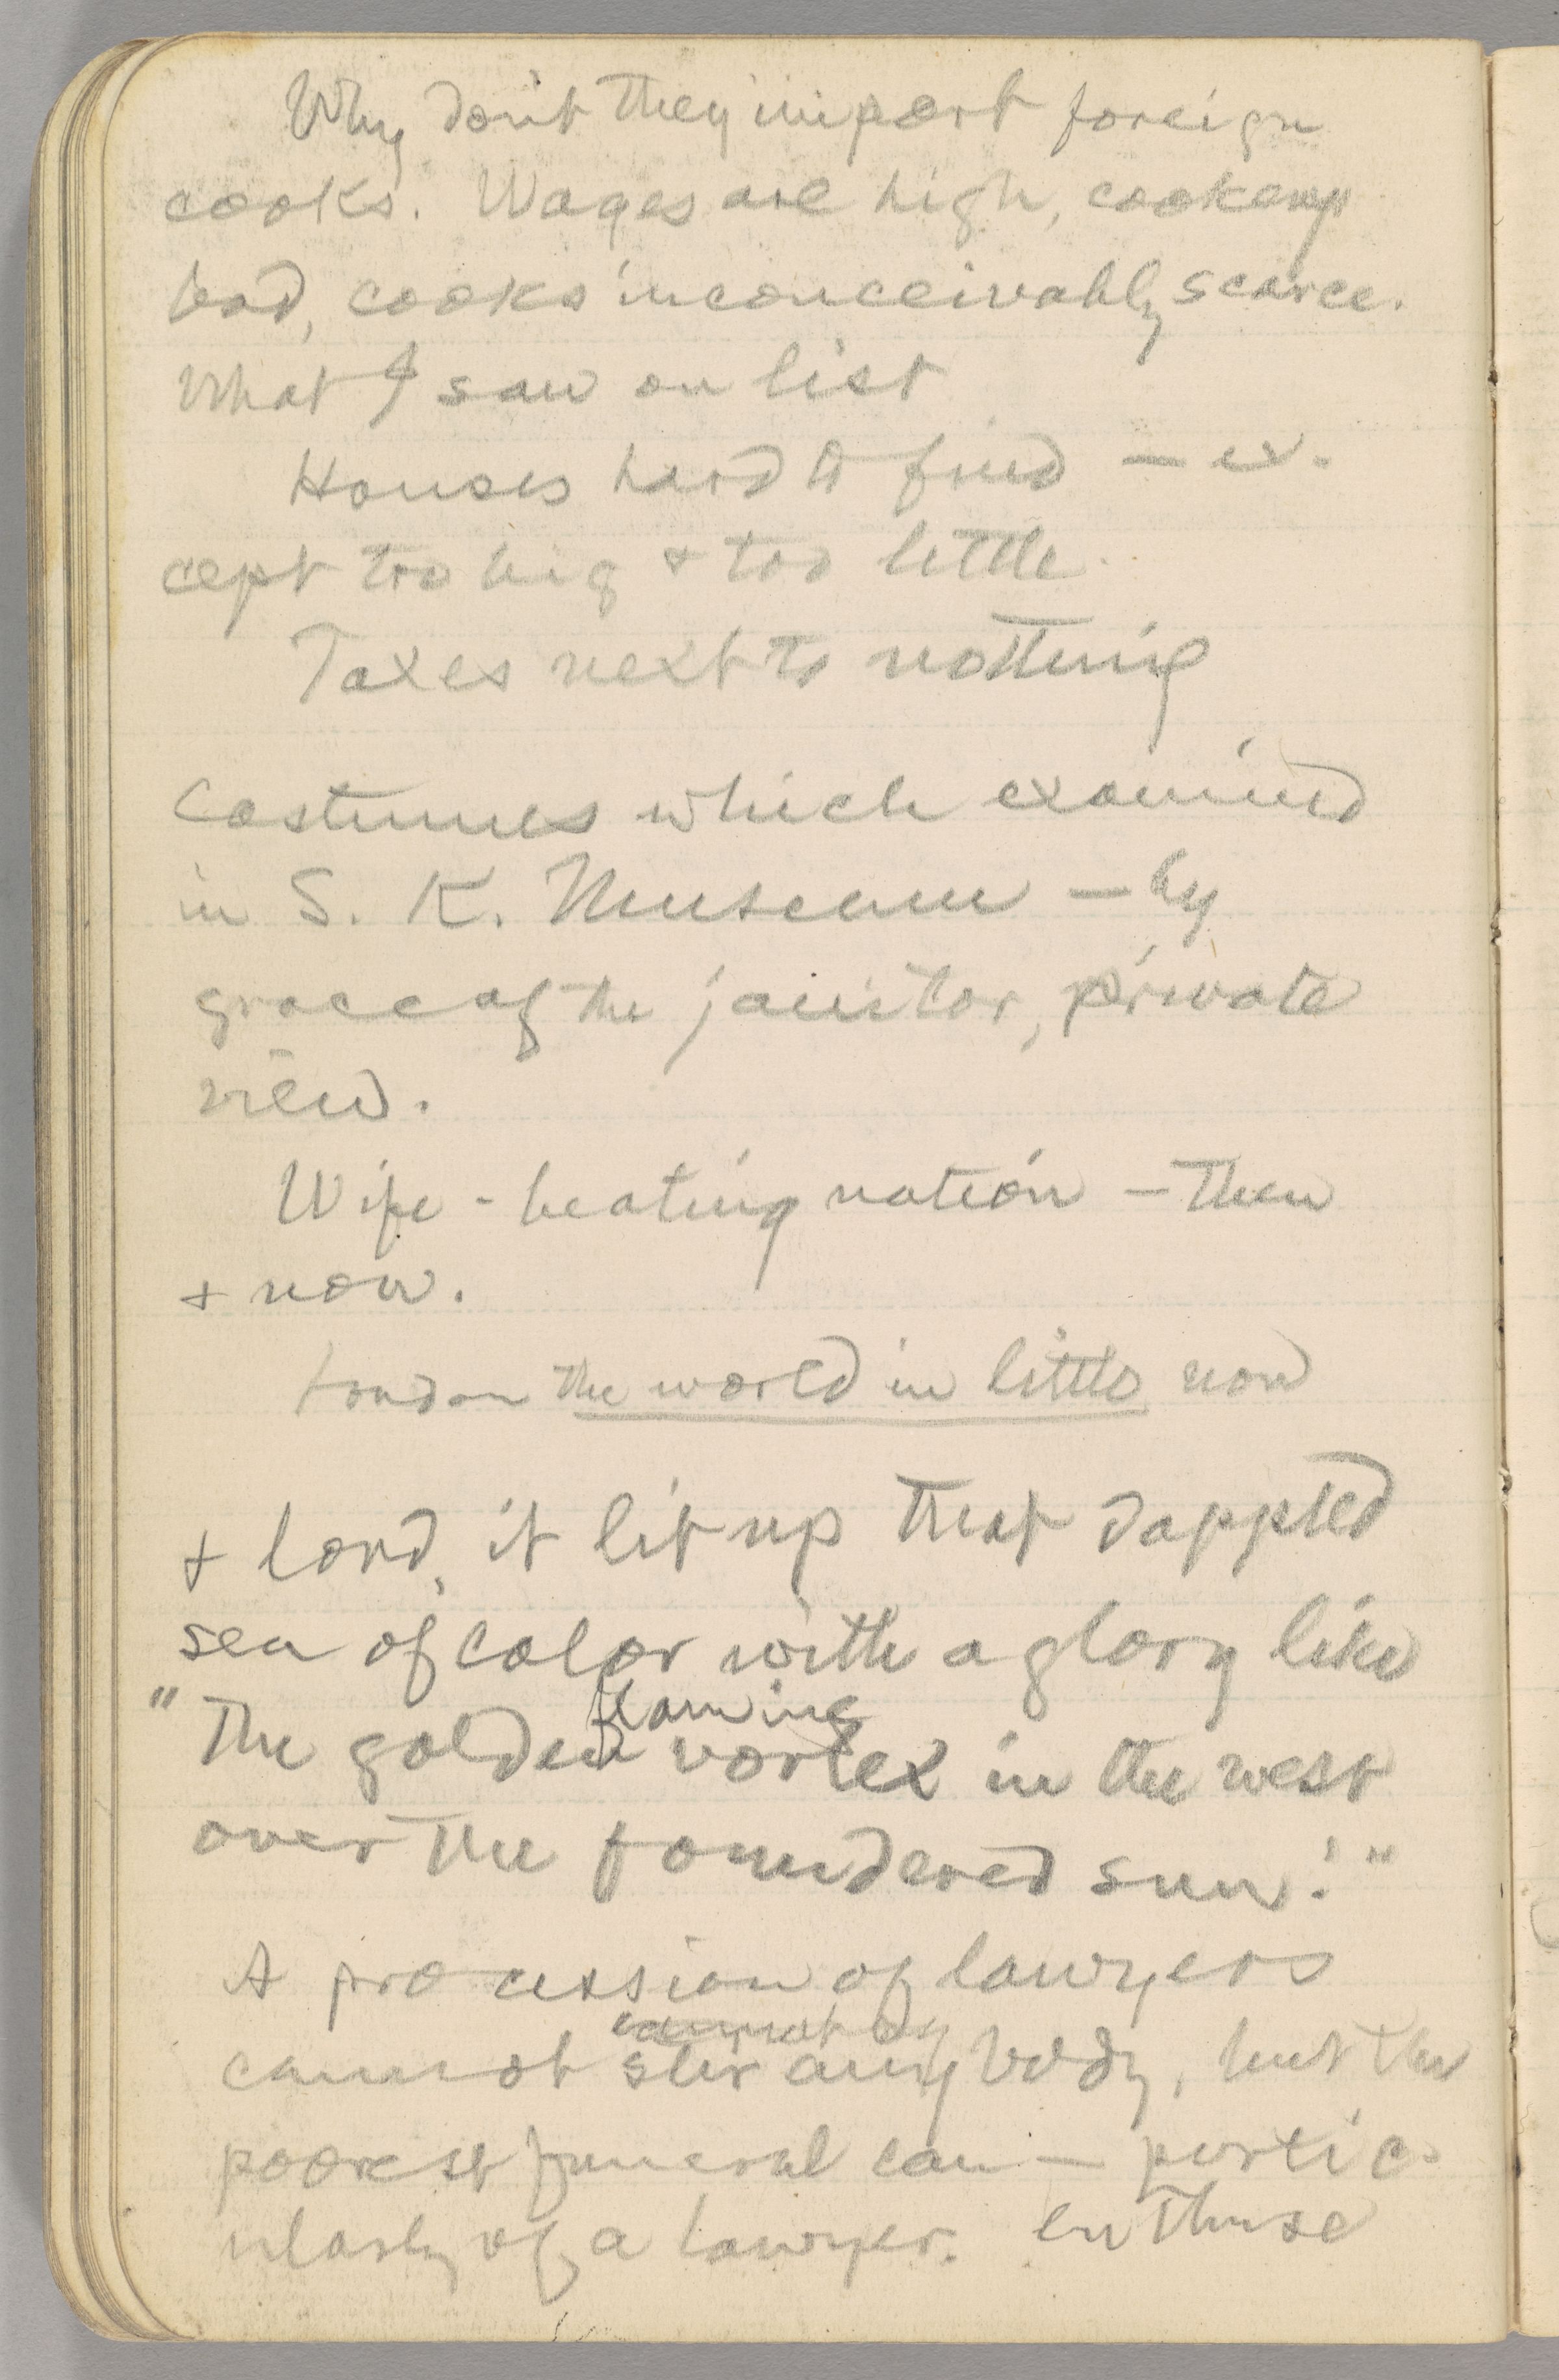 Why don't they import foreign
cooks. Wages are high, cookery
bad, cooks inconceivably scarce.
What I saw on list
Houses hard to find — ex-
cept too big & too little.
Taxes next to nothing
Costumes which examined
in S. K. Museum — by
grace of the janitor, private
view.
Wife-beating nation — then
& now.
London the world in little now
& lord, it lit up that dappled
sea of color with a glory like
flaming
"the golden vortex in the west
over the foundered sun."
A procession of lawyers
cannot
cannot stir anybody, but the
poorest funeral can — partic-
ularly of a lawyer. enthuse